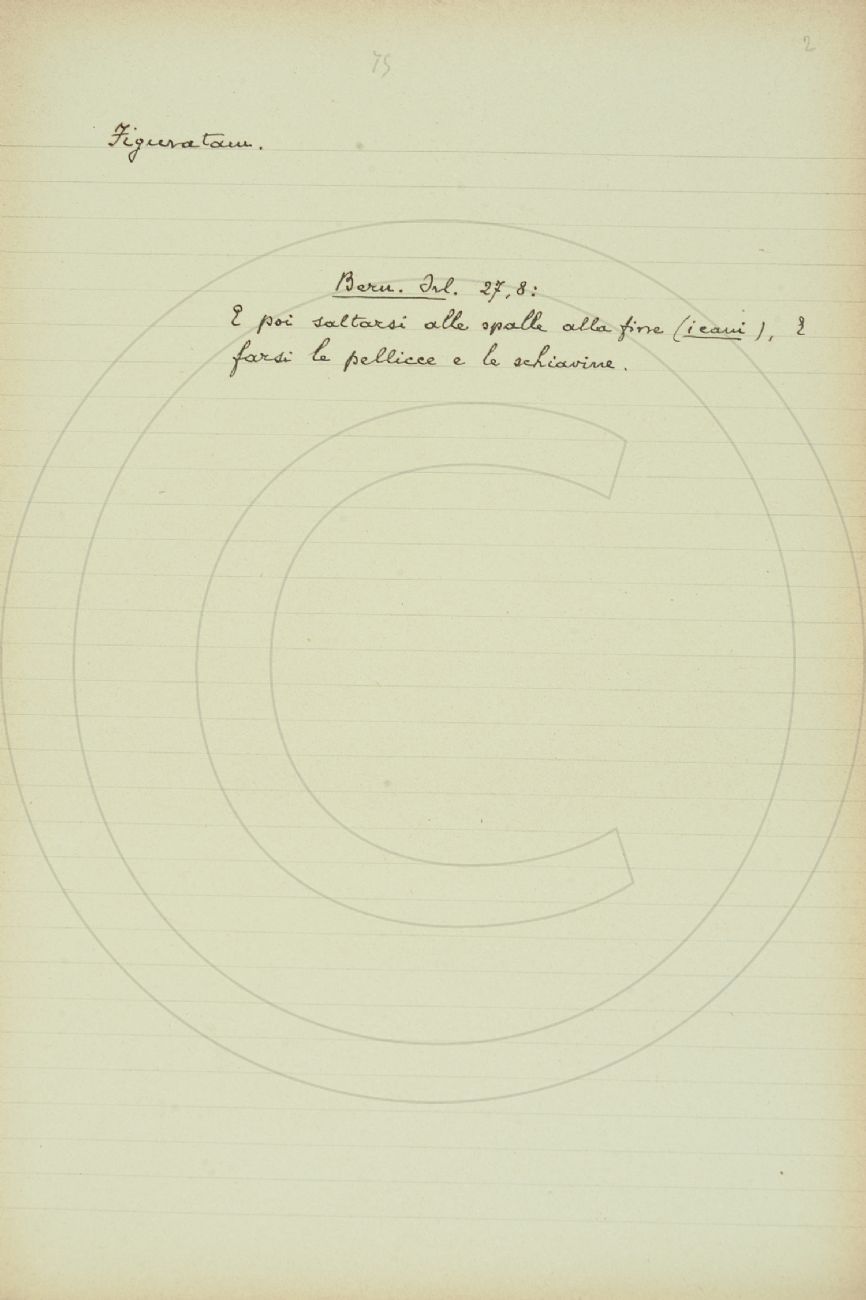 75
2
Figuratam.
Bern. Orl. 27,8:
E poi saltarsi alle spalle alla fine (i cani), E
farsi le pellicce e le schiavine.